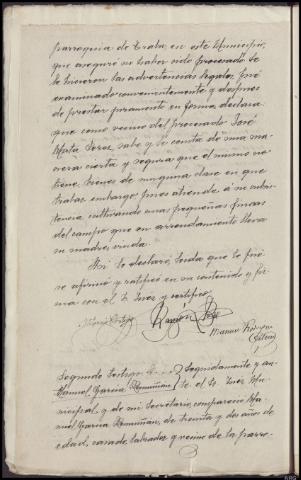 parroquia de Traba, en este Municipio,
que aseguró no haber sido procesado. Se
le hicieron las advertencias legales, fué
examinado convenientemente y despues
de prestar juramento en forma, declara
que como vecino del procesado José
Mata Perez, sabe y le consta de una ma-
nera cierta y segura que el mismo no
tiene bienes de ninguna clase en que
trabar embargo, pues atiende á su subsis-
tencia cultivando unas pequeñas fincas
del campo que en arrendamiento lleva
su madre, viuda.
Así lo declaró, leida que le fué
se afirmó y ratificó en su contenido y fir-
ma con el Sr. Juez y certifico.
Ramón
Manuel
Segundo Testigo
Manuel Garcia Romuiñan
Seguidamente y an-
te el Sr. Juez Mu-
nicipal y de mi Secretario, compareció Ma-
nuel Garcia Romuiñan, de treinta y dos años de
edad, casado, labrador y vecino de la parro-